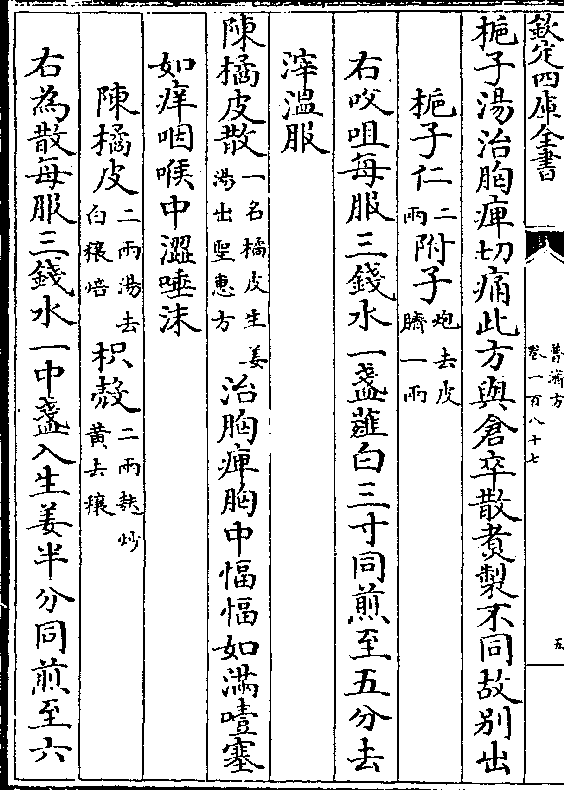 欽定四庫全書
普濟方
卷一百八十七
五
梔子湯治胸痺切痛此方與倉卒散煑製不同故别出
梔子仁二兩附子炮去皮臍一兩
右㕮咀每服三錢水一盞薤白三寸同煎至五分去
滓溫服
陳橘皮散一名橘皮生姜湯出聖惠方治胸痺胸中愊愊如滿噎塞
如痒咽喉中澀唾沫
陳橘皮二兩湯去白穰焙枳殻二兩麩炒黄去穰
右為散每服三錢水一中盞入生姜半分同煎至六